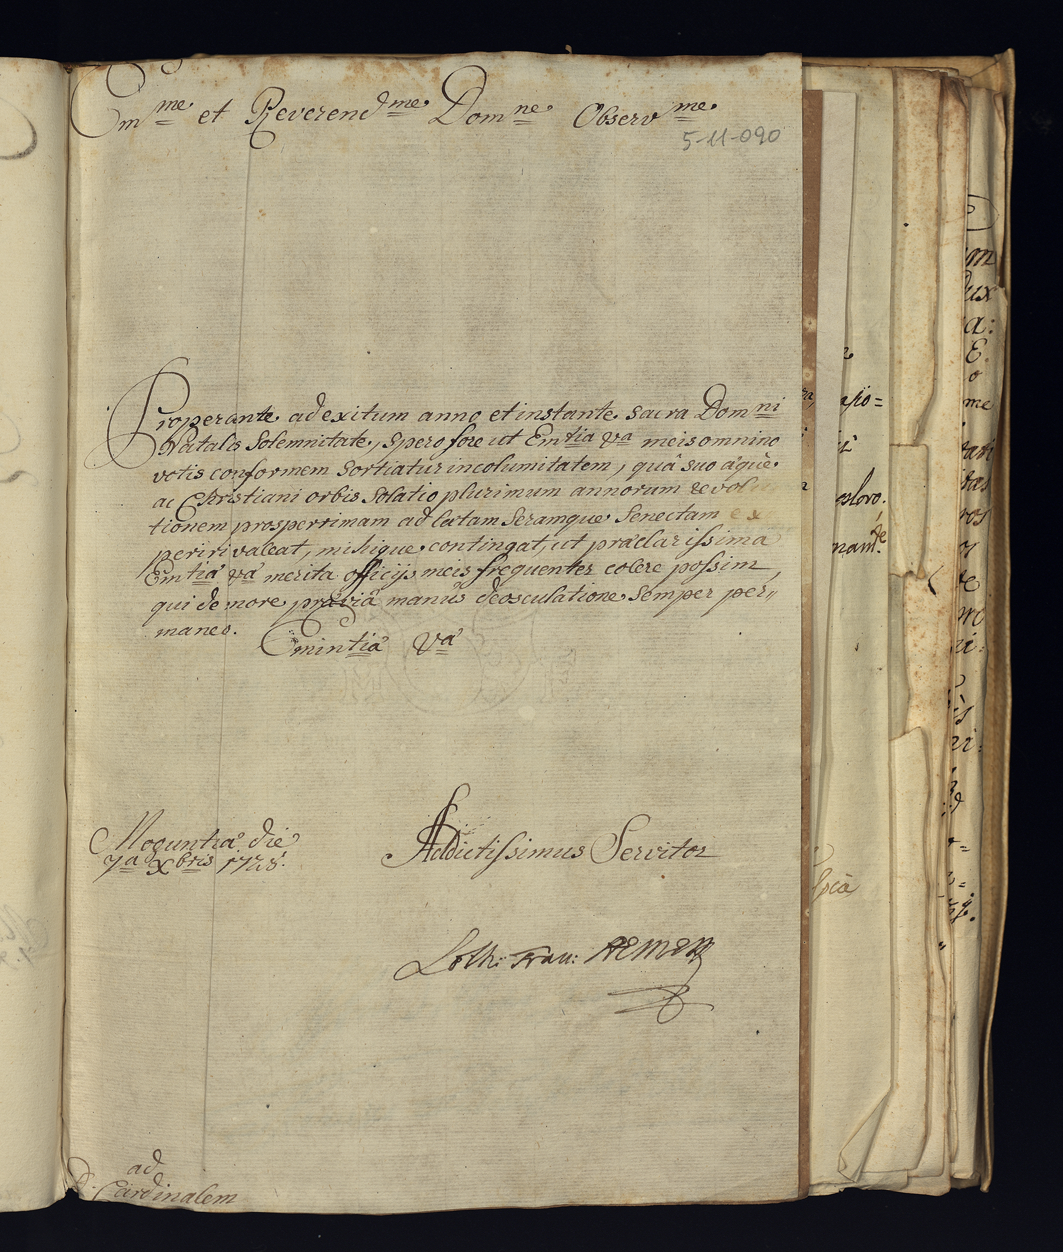 Em^me. et Reverend^me. Dom^ne. Observ^me.
5-11-090
Properante ad exitum anno et instante sacra Dom^ni
Natalis Solemnitate, spero fore ut Em^tia V^a meis omnino
votis conformem sortiatur incolumitatem, quâ suo aequè
ac Christiani orbis Solatio plurimum annorum revolu
tionem prosperrimam ad laetam seramque Senectam ex
periri valeat, mihique contingat, ut praeclarissima
Em^tiae V^ae merita officijs meis frequenter colere possim,
qui de more praeviâ manûs deosculatione semper per„
maneo.
Emin^tiae V^ae
Moguntiae die
7^a X^bris 1728.
Addictissimus Servitor
Loth: Fran:
ad
D. Cardinalem